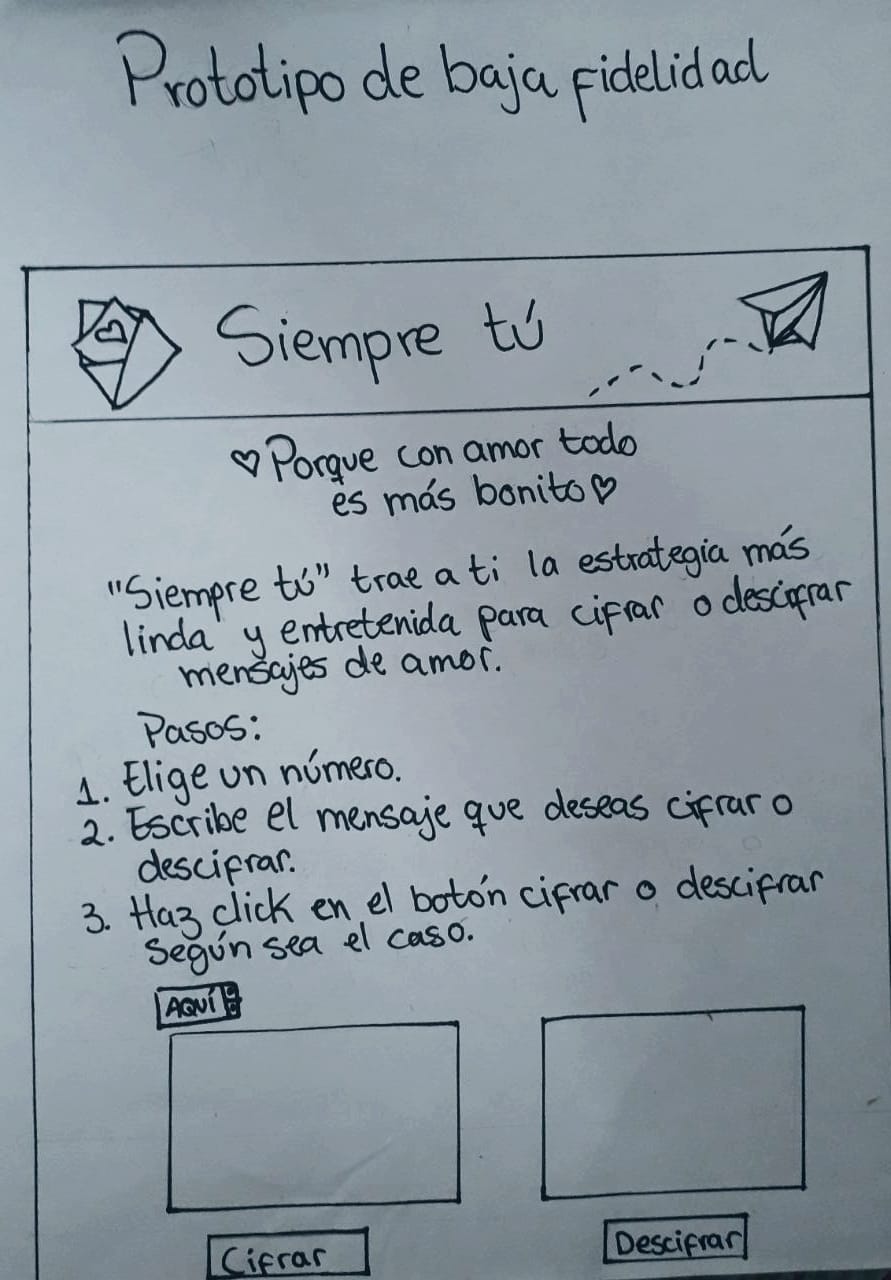 Prototipo de baja fidelidad
Siempre tú
♡Porque con amor todo
es más bonito♡
"Siempre tú" trae a ti la estrategia más
linda y entretenida para cifrar o descifrar
mensajes de amor.
Pasos:
1. Elige un número.
2. Escribe el mensaje que deseas cifrar o
descifrar.
3. Haz click en el botón cifrar o descifrar
según sea el caso.
AQUÍ
Cifrar
Descifrar